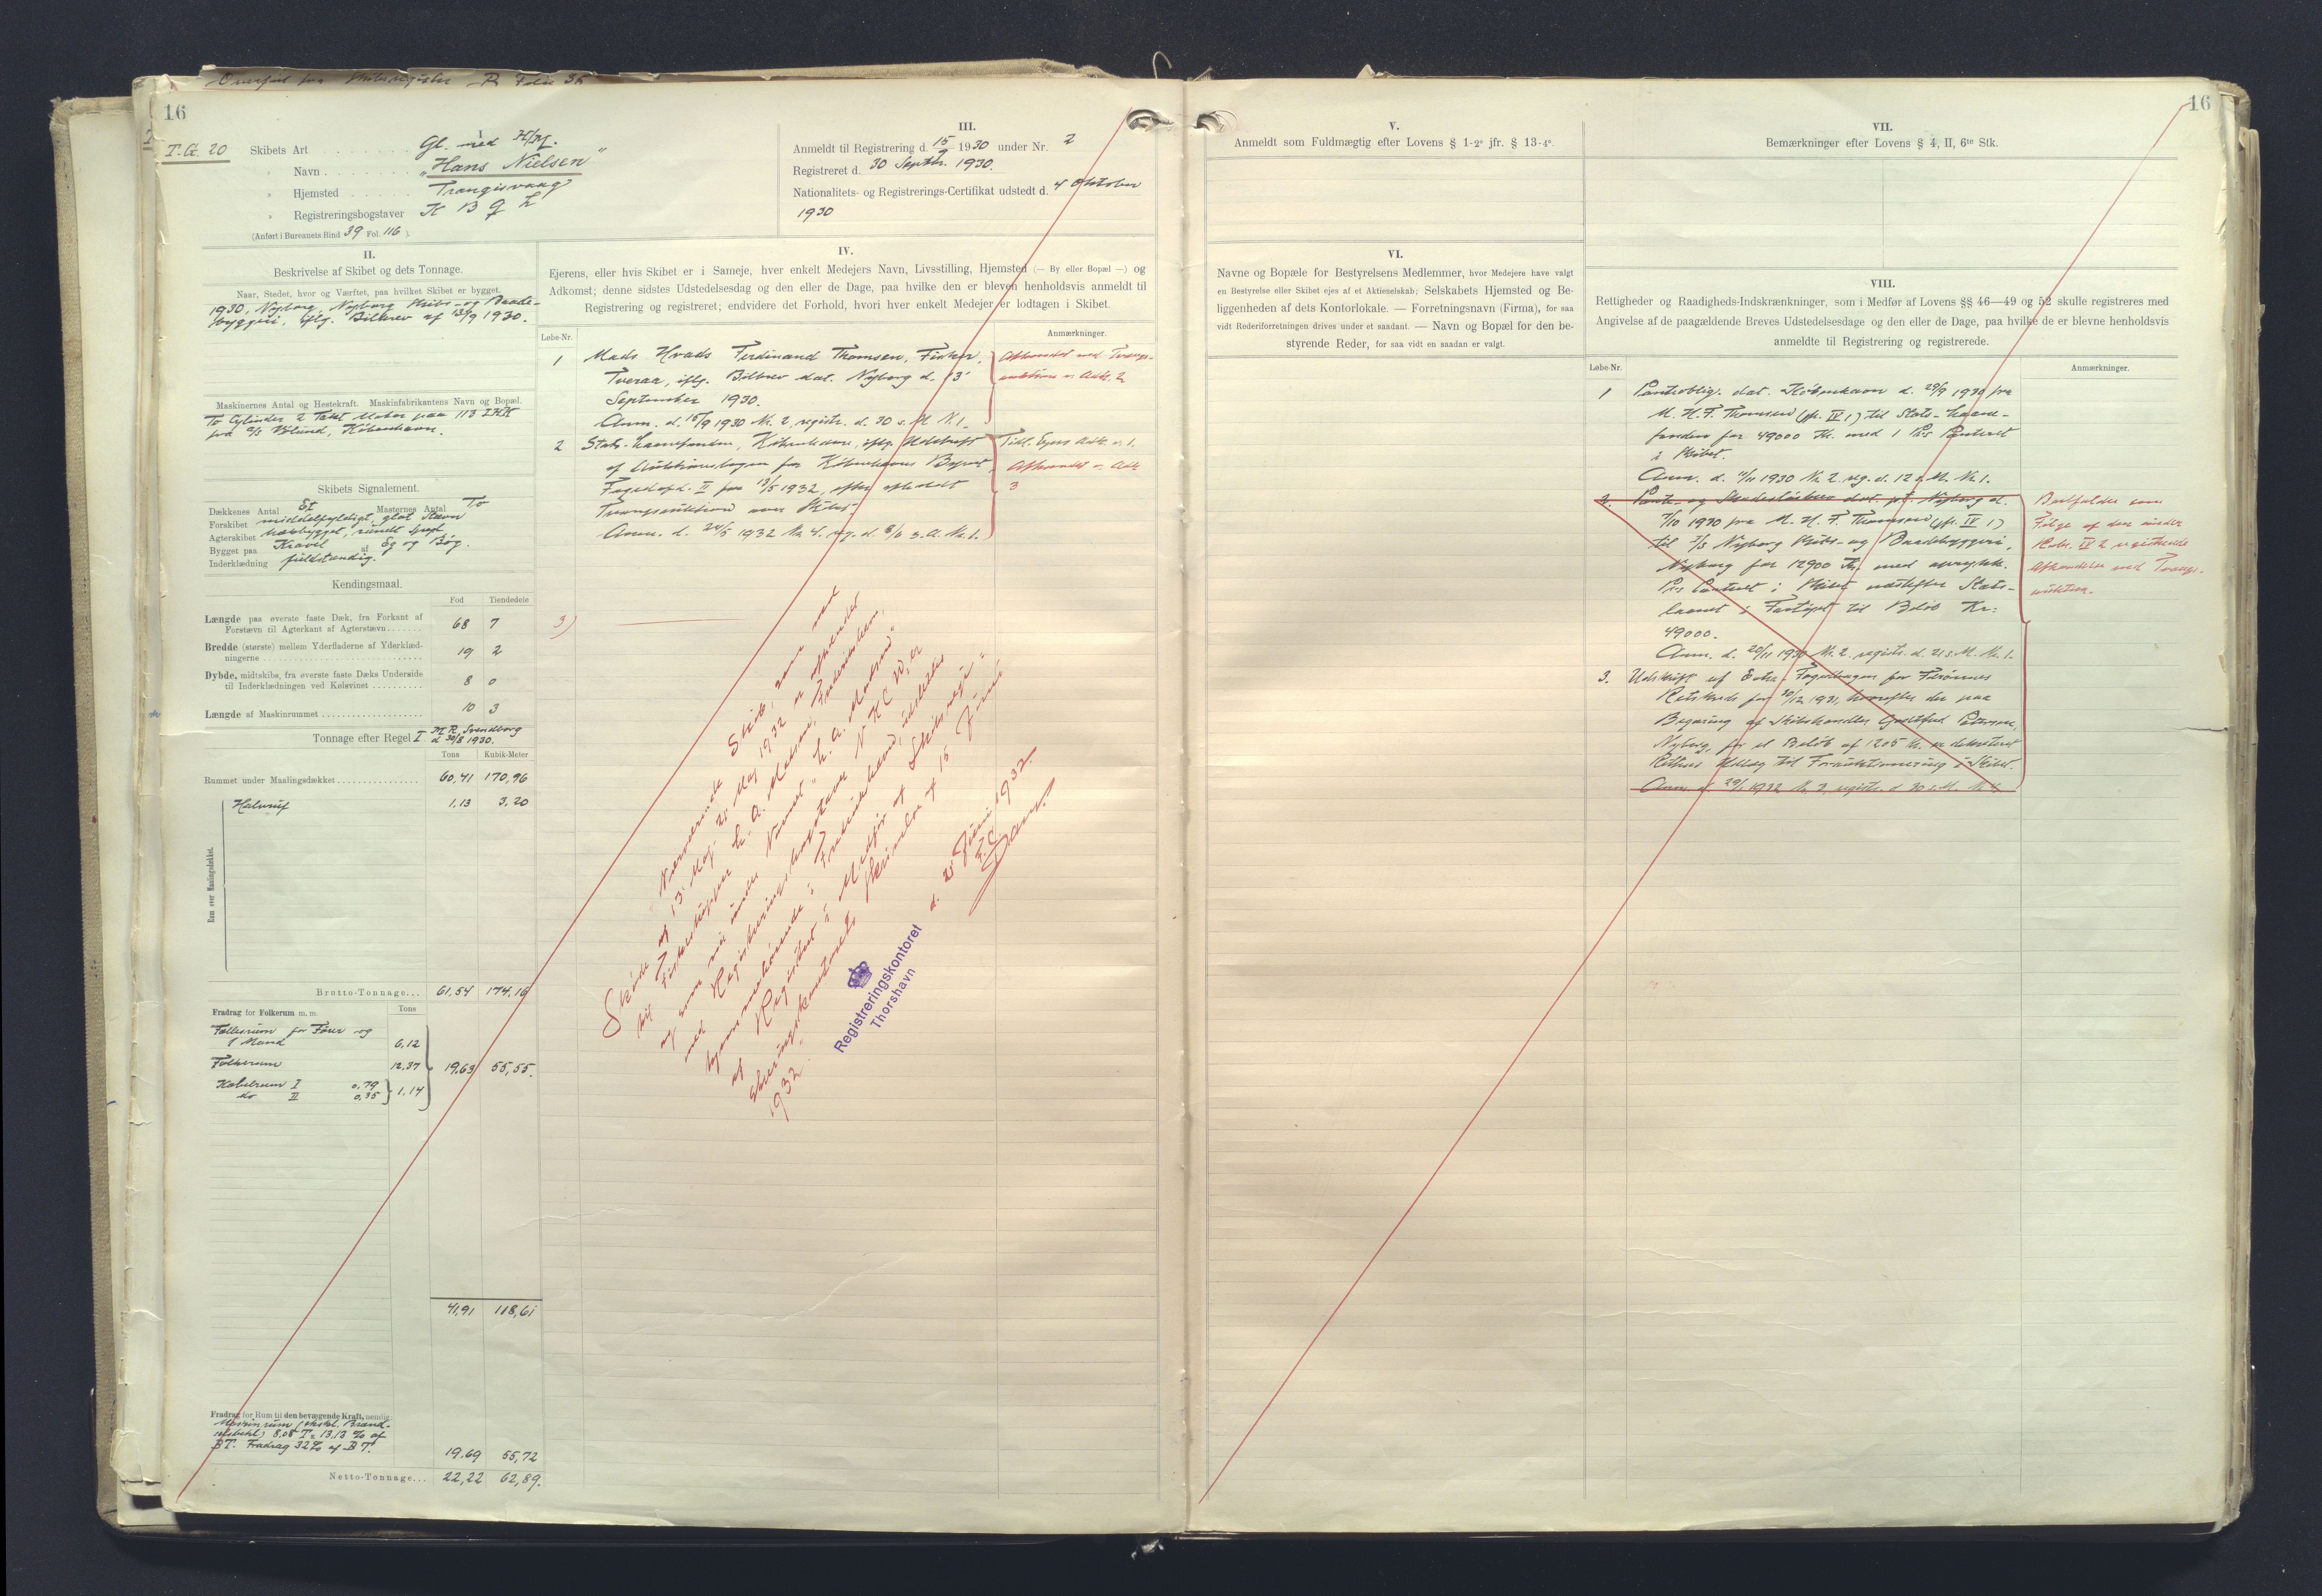 Overført fra Skibsregister B Folio 35
16
T.G. 20
I
Skibets Art Gl. med H/M.
" Navn "Hans Nielsen"
" Hjemsted Trangisvaag
" Registreringsbogstaver
(Anført i Bureauets Bind 39 Fol. 116 ).
III.
Anmeldt til Registrering d. 15/9 1930 under Nr. 2
Registreret d. 30 Septbr. 1930.
Nationalitets- og Registrerings-Certifikat udstedt d. 4 Oktober
1930
II.
Beskrivelse af Skibet og dets Tonnage.
Naar, Stedet, hvor og Værftet, paa hvilket Skibet er bygget.
1930, Nyborg, Nyborg Skibs- og Baade-
byggeri, iflg. Bilbrev af 13/9 1930.
Maskinernes Antal og Hestekraft. Maskinfabrikantens Navn og Bopæl.
To Cylinder 2 Takt Motor paa 113 IHK
fra A/S Vølund, København.
Skibets Signalement.
Dækkenes Antal Et Masternes Antal To
Forskibet middelfyldigt, glat Stævn
Agterskibet rundt Spejl
Bygget paa Kravel af Eg og Bøg.
Inderklædning fuldstændig.
Kendingsmaal.
Fod Tiendedele
Længde paa øverste faste Dæk, fra Forkant af
Forstævn til Agterkant af Agterstævn 68 7
Bredde (største) mellem Yderfladerne af Yderklæd-
ningerne 19 2
Dybde, midtskibs, fra øverste faste Dæks Underside
til Inderklædningen ved Kølsvinet 8 0
Længde af Maskinrummet 10 3
Tonnage efter Regel I M.R. Svendborg
d. 30/8 1930.
Tons Kubik-Meter
Rummet under Maalingsdækket 60,41 170,96
Rum over Maalingsdækket.
Halvruf 1,13 3,20
Brutto-Tonnage... 61,54 174,16
Fradrag for Folkerum m. m. Tons
Fællesrum for Fører og
1 Mand 6,12
Folkerum 12,37 19,63 55,55.
Kabelrum I 0,79
do II 0,35 1,14
41,91 118,61
Fradrag for Rum til den bevægende Kraft, nemlig:
Maskinrum (ekskl. Brænd-
selsbeh.) 8,08 T = 13,13 % af
BT. Fradrag 32% af BT. 19.69 55,72
Netto-Tonnage... 22,22 62,89.
IV.
Ejerens, eller hvis Skibet er i Sameje, hver enkelt Medejers Navn, Livsstilling, Hjemsted (— By eller Bopæl —) og
Adkomst; denne sidstes Udstedelsesdag og den eller de Dage, paa hvilke den er bleven henholdsvis anmeldt til
Registrering og registreret; endvidere det Forhold, hvori hver enkelt Medejer er lodtagen i Skibet.
Løbe-Nr. Anmærkninger.
1 Mads Hvads Ferdinand Thomsen, Fisker,
Tveraa, iflg. Bilbrev dat. Nyborg d. 13'
September 1930.
Anm. d. 15/9 1930 Nr. 2, registr. d. 30 s. M. N. 1.
Afhændet ved Tvangs-
auktion v. Adk. 2
2 Stats-Laanefonden, København, iflg. Udskrift
af Auktionsbogen for Københavns Byret
Fogedafd. II for 13/5 1932, efter afholdt
Tvangsauktion over Skibet.
Anm. d. 24/5 1932 Nr. 4. reg. d. 8/6 s. A. Nr. 1.
Tidl. Ejers Adk. v. 1.
Afhændet v. Adk
3
3)
Nærværende Skib, som ved
Skøde af 13' Maj - 21' Maj 1932 er afhændet
til Fiskeskipper L. A. Madsen, Frederikshavn,
og som nu under Navnet "L. A. Madsen"
med Registreringsbogstaver N K C W, er
hjemmehørende i Frederikshavn, udslettes
af Registret i Medfør af Skibsregi-
streringskontorets Skrivelse af 15 Juni
1932.
d. 21' Juni 1932.
F.C.
Registreringskontoret
Thorshavn
16
V.
Anmeldt som Fuldmægtig efter Lovens § 1-2° jfr. § 13-4°.
VI.
Navne og Bopæle for Bestyrelsens Medlemmer, hvor Medejere have valgt
en Bestyrelse eller Skibet ejes af et Aktieselskab; Selskabets Hjemsted og Be-
liggenheden af dets Kontorlokale. — Forretningsnavn (Firma), for saa
vidt Rederiforretningen drives under et saadant. — Navn og Bopæl for den be-
styrende Reder, for saa vidt en saadan er valgt.
VII.
Bemærkninger efter Lovens § 4, II, 6te Stk.
VIII.
Rettigheder og Raadigheds-Indskrænkninger, som i Medfør af Lovens §§ 46—49 og 52 skulle registreres med
Angivelse af de paagældende Breves Udstedelsesdage og den eller de Dage, paa hvilke de er blevne henholdsvis
anmeldte til Registrering og registrerede.
Løbe-Nr. Anmærkninger.
1 Pantoblig. dat. København d. 29/9 1930 fra
M. H. F. Thomsen (jfr. IV 1) til Stats-Laane-
fonden for 49000 Kr. med 1 Pr's Panteret
i Skibet.
Anm. d. 11/11 1930 Nr. 2. reg. d. 12 s. M. Nr. 1.
2. Pante- og Skadesløsbrev dat. pt. Nyborg d.
7/10 1930 fra M. H. F. Thomsen (jfr. IV 1)
til Nyborg Skibs- og Baadebyggeri,
Nyborg for 12900 Kr. med oprykk.
Pr's Panteret i Skibet næstefter Stats-
laanet i Fartøjet til Beløb Kr:
49000.
Anm. d. 20/11 1930 Nr. 2. registr. d. 21 s. M. Nr. 1.
Bortfalder som
Følge af den under
Rubr. IV 2 registrerede
Afhændelse ved Tvangs-
auktion.
3. Udskrift af Fogedbogen for Færøernes
Retskreds for 30/12 1931, hvorefter der paa
Begæring af Skibshandler Petersen,
Nyborg, for et Beløb af 1205 Kr. er dekreteret
Udlæg til Forauktionering i Skibet.
Anm. d. 29/1 1932 Nr. 3, registr. d. 30 s. M. Nr. 4.